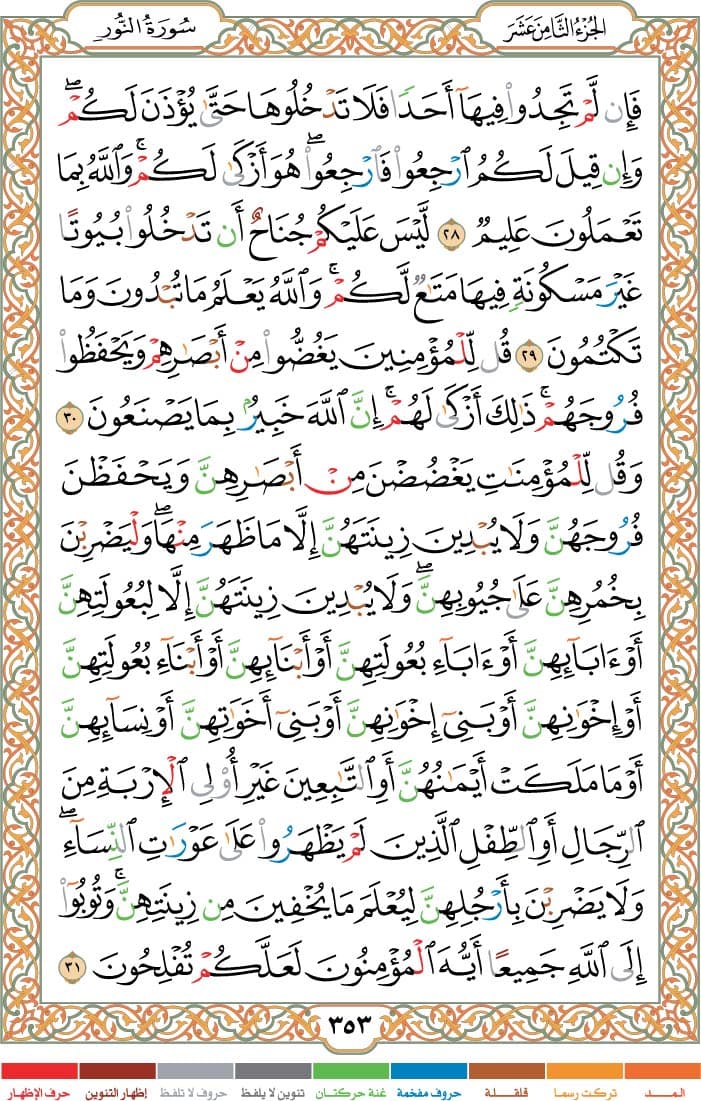 الجزء الثامن عشر
سورة النور
فَإِن لَّمْ تَجِدُوا۟ فِيهَآ أَحَدًا فَلَا تَدْخُلُوهَا حَتَّىٰ يُؤْذَنَ لَكُمْ ۖ
وَإِن قِيلَ لَكُمُ ٱرْجِعُوا۟ فَٱرْجِعُوا۟ ۖ هُوَ أَزْكَىٰ لَكُمْ ۚ وَٱللَّهُ بِمَا
تَعْمَلُونَ عَلِيمٌ ٢٨ لَّيْسَ عَلَيْكُمْ جُنَاحٌ أَن تَدْخُلُوا۟ بُيُوتًا
غَيْرَ مَسْكُونَةٍ فِيهَا مَتَـٰعٌ لَّكُمْ ۚ وَٱللَّهُ يَعْلَمُ مَا تُبْدُونَ وَمَا
تَكْتُمُونَ ٢٩ قُل لِّلْمُؤْمِنِينَ يَغُضُّوا۟ مِنْ أَبْصَـٰرِهِمْ وَيَحْفَظُوا۟
فُرُوجَهُمْ ۚ ذَٰلِكَ أَزْكَىٰ لَهُمْ ۗ إِنَّ ٱللَّهَ خَبِيرٌۢ بِمَا يَصْنَعُونَ ٣٠
وَقُل لِّلْمُؤْمِنَـٰتِ يَغْضُضْنَ مِنْ أَبْصَـٰرِهِنَّ وَيَحْفَظْنَ
فُرُوجَهُنَّ وَلَا يُبْدِينَ زِينَتَهُنَّ إِلَّا مَا ظَهَرَ مِنْهَا ۖ وَلْيَضْرِبْنَ
بِخُمُرِهِنَّ عَلَىٰ جُيُوبِهِنَّ ۖ وَلَا يُبْدِينَ زِينَتَهُنَّ إِلَّا لِبُعُولَتِهِنَّ
أَوْ ءَابَآئِهِنَّ أَوْ ءَابَآءِ بُعُولَتِهِنَّ أَوْ أَبْنَآئِهِنَّ أَوْ أَبْنَآءِ بُعُولَتِهِنَّ
أَوْ إِخْوَٰنِهِنَّ أَوْ بَنِىٓ إِخْوَٰنِهِنَّ أَوْ بَنِىٓ أَخَوَٰتِهِنَّ أَوْ نِسَآئِهِنَّ
أَوْ مَا مَلَكَتْ أَيْمَـٰنُهُنَّ أَوِ ٱلتَّـٰبِعِينَ غَيْرِ أُو۟لِى ٱلْإِرْبَةِ مِنَ
ٱلرِّجَالِ أَوِ ٱلطِّفْلِ ٱلَّذِينَ لَمْ يَظْهَرُوا۟ عَلَىٰ عَوْرَٰتِ ٱلنِّسَآءِ ۖ
وَلَا يَضْرِبْنَ بِأَرْجُلِهِنَّ لِيُعْلَمَ مَا يُخْفِينَ مِن زِينَتِهِنَّ ۚ وَتُوبُوٓا۟
إِلَى ٱللَّهِ جَمِيعًا أَيُّهَ ٱلْمُؤْمِنُونَ لَعَلَّكُمْ تُفْلِحُونَ ٣١
٣٥٣
المــد تركت رسما قلقـلة حروف مفخمة غنة حركتـان تنوين لا يلفظ حروف لا تلفظ إظهار التنوين حرف الإظهار